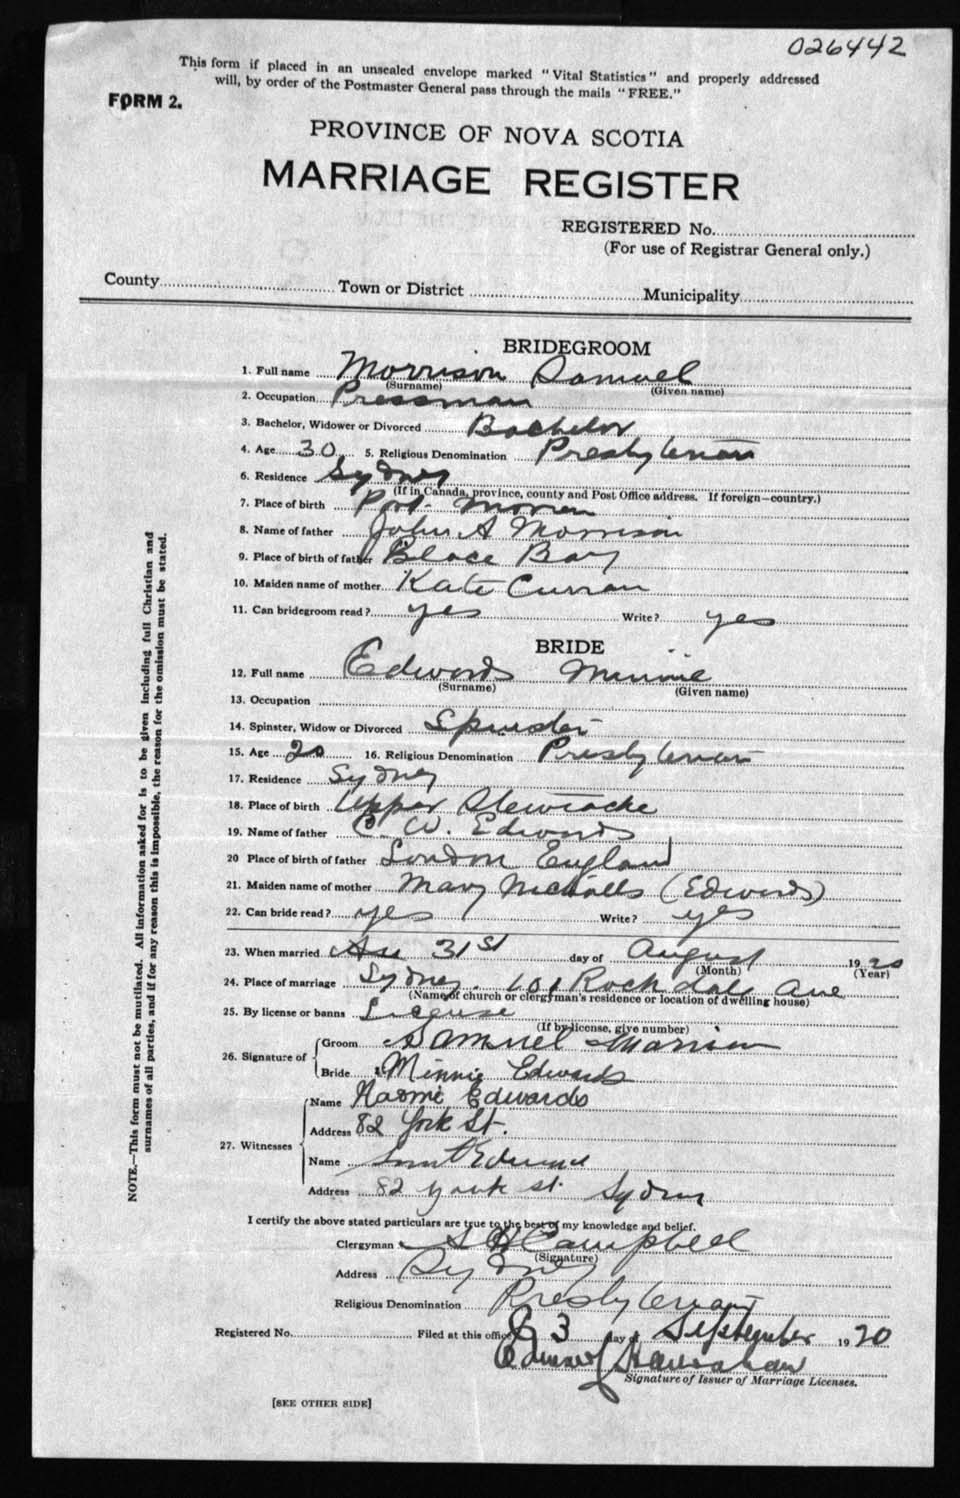 026442
This form if placed in an unsealed envelope marked "Vital Statistics" and properly addressed
will, by order of the Postmaster General pass through the mails "FREE."
FORM 2.
PROVINCE OF NOVA SCOTIA
MARRIAGE REGISTER
REGISTERED No.
(For use of Registrar General only.)
County Town or District Municipality
BRIDEGROOM
1. Full name Morrison Samuel
(Surname) (Given name)
2. Occupation Pressman
3. Bachelor, Widower or Divorced Bachelor
4. Age 30 5. Religious Denomination Presbyterian
6. Residence Sydney
(If in Canada, province, county and Post Office address. If foreign—country.)
7. Place of birth Port Morien
8. Name of father John A Morrison
9. Place of birth of father Glace Bay
10. Maiden name of mother Kate Curran
11. Can bridegroom read? yes Write? yes
BRIDE
12. Full name Edwards Minnie
(Surname) (Given name)
13. Occupation
14. Spinster, Widow or Divorced Spinster
15. Age 20 16. Religious Denomination Presbyterian
17. Residence Sydney
18. Place of birth Upper Stewiacke
19. Name of father C. W. Edwards
20 Place of birth of father London England
21. Maiden name of mother Mary Nicholls (Edwards)
22. Can bride read? yes Write? yes
23. When married 31st day of August 1920
(Month) (Year)
24. Place of marriage Sydney. 101 Rockdale Ave
(Name of church or clergyman's residence or location of dwelling house)
25. By license or banns License
(If by license, give number)
26. Signature of
Groom Samuel Morrison
Bride Minnie Edwards
27. Witnesses
Name Naomi Edwards
Address 82 York St.
Name Edwards
Address 82 York St. Sydney
I certify the above stated particulars are true to the best of my knowledge and belief.
Clergyman Campbell
(Signature)
Address Sydney
Religious Denomination Presbyterian
Registered No. Filed at this office 3 day of September 1920
Signature of Issuer of Marriage Licenses.
[SEE OTHER SIDE]
NOTE.—This form must not be mutilated. All information asked for is to be given including full Christian and
surnames of all parties, and if for any reason this is impossible, the reason for the omission must be stated.